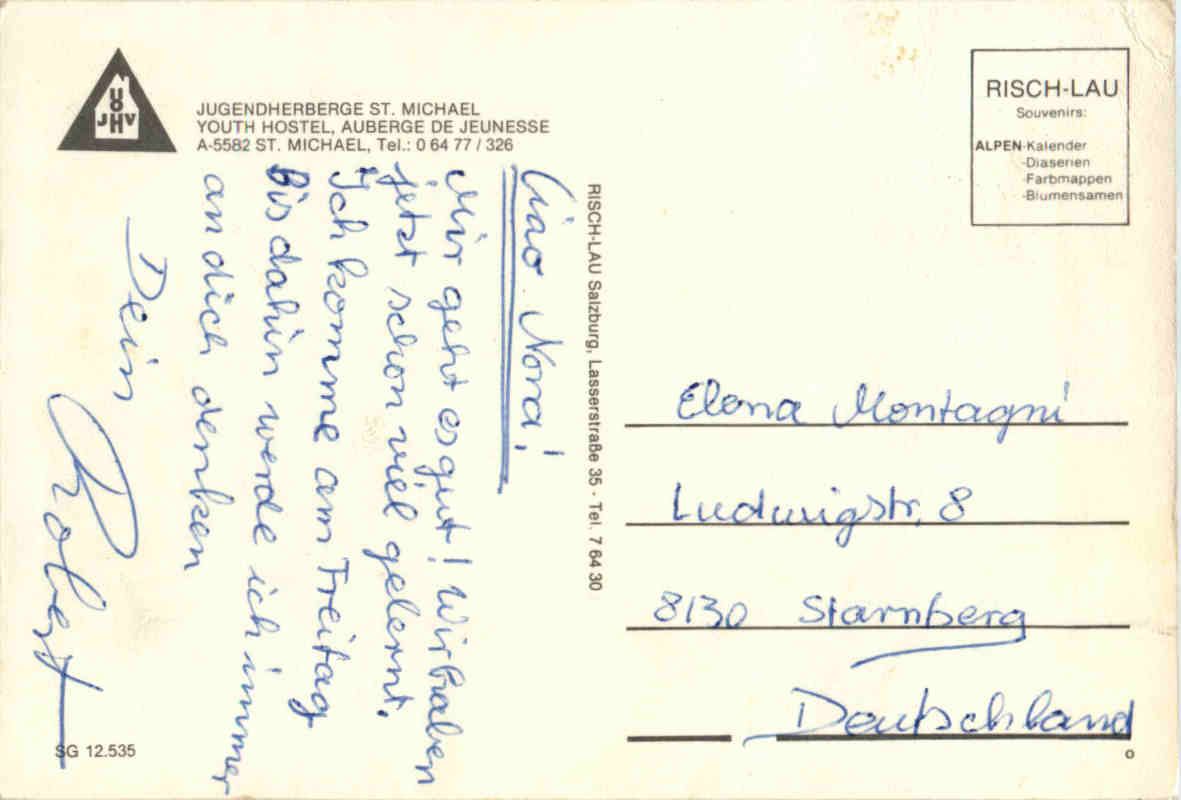 UO
JHV
JUGENDHERBERGE ST. MICHAEL
YOUTH HOSTEL, AUBERGE DE JEUNESSE
A-5582 ST. MICHAEL, Tel.: 0 64 77 / 326
Ciao Nora!
Mir geht es gut! Wir haben
jetzt schon viel gelernt.
Ich komme am Freitag
Bis dahin werde ich immer
an dich denken
Dein
Robert
SG 12.535
RISCH-LAU Salzburg, Lasserstraße 35 · Tel. 7 64 30
RISCH-LAU
Souvenirs:
ALPEN-Kalender
-Diaserien
-Farbmappen
-Blumensamen
Elena Montagni
Ludwigstr. 8
8130 Starnberg
Deutschland